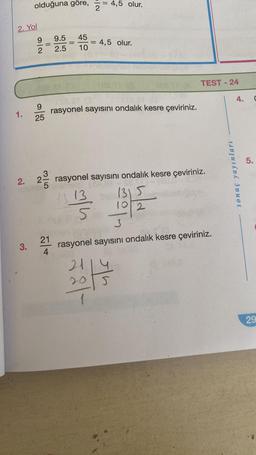 olduğuna göre, 9/2 = 4,5 olur.
2. Yol
9/2 = 9.5/2.5 = 45/10 = 4,5 olur.
TEST - 24
1. 9/25 rasyonel sayısını ondalık kesre çeviriniz.
2. 2 3/5 rasyonel sayısını ondalık kesre çeviriniz.
13/5
13 5
10 2
3
3. 21/4 rasyonel sayısını ondalık kesre çeviriniz.
21 4
20 5
1
4.
sonuç yayınları
5.
29